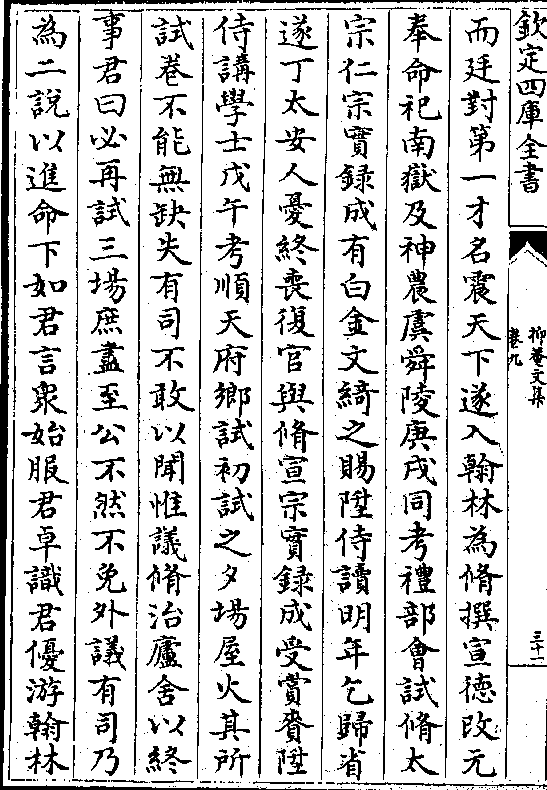 欽定四庫全書
抑菴文集
卷九
三十一
而廷對第一才名震天下遂入翰林為脩撰宣德改元
奉命祀南嶽及神農虞舜陵庚戌同考禮部會試脩太
宗仁宗實録成有白金文綺之賜陞侍讀明年乞歸省
遂丁太安人憂終喪復官與脩宣宗實録成受賞賚陞
侍講學士戊午考順天府鄉試初試之夕場屋火其所
試卷不能無缺失有司不敢以聞惟議脩治廬舍以終
事君曰必再試三場庶盡至公不然不免外議有司乃
為二說以進命下如君言衆始服君卓識君優游翰林